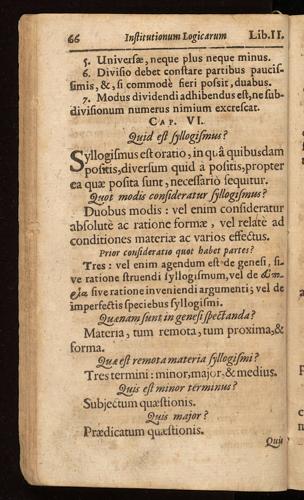 66 Institutionum Logicarum Lib. II.
5. Universæ, neque plus neque minus.
6. Divisio debet constare partibus paucis-
simis, &, si commodè fieri possit, duabus.
7. Modus dividendi adhibendus est, ne sub-
divisionum numerus nimium excrescat.
CAP. VI.
Quid est syllogismus?
Syllogismus est oratio, in quâ quibusdam
positis, diversum quid à positis, propter
ea quæ posita sunt, necessariò sequitur.
Quot modis consideratur syllogismus?
Duobus modis: vel enim consideratur
absolutè ac ratione formæ, vel relatè ad
conditiones materiæ ac varios effectus.
Prior consideratio quot habet partes?
Tres: vel enim agendum est de genesi, si-
ve ratione struendi syllogismum, vel de
sive ratione inveniendi argumenti; vel de
imperfectis speciebus syllogismi.
Quænam sunt in genesi spectanda?
Materia, tum remota, tum proxima, &
forma.
Quæ est remota materia syllogismi?
Tres termini: minor, major, & medius.
Quis est minor terminus?
Subjectum quæstionis.
Quis major?
Prædicatum quæstionis.
Quis